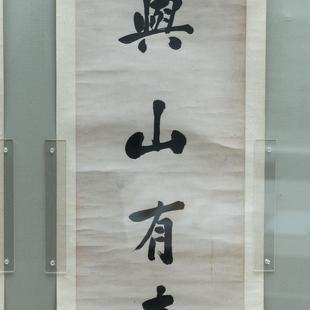 與山有